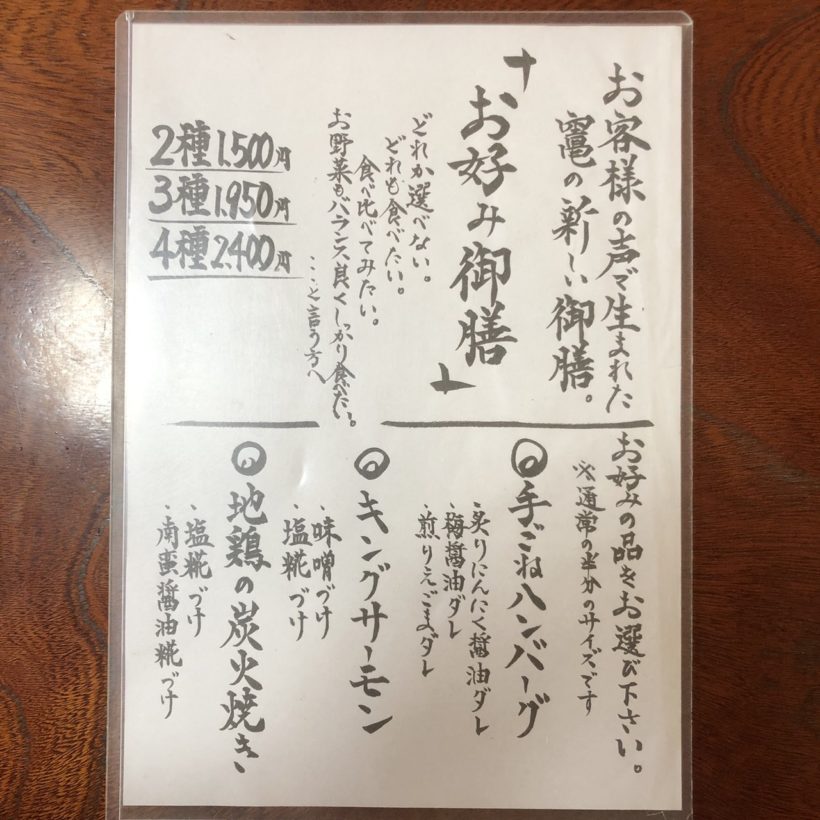 お客様の声で生まれた
竈の新しい御膳。
「お好み御膳」
どれか選べない。
どれも食べたい。
食べ比べてみたい。
お野菜もバランス良くしっかり食べたい。
…と言う方へ
2種1,500円
3種1,950円
4種2,400円
お好みの品をお選び下さい。
※通常の半分のサイズです
◎手ごねハンバーグ
・炙りにんにく醤油ダレ
・梅醤油ダレ
・煎りえごまダレ
◎キングサーモン
・味噌づけ
・塩糀づけ
◎地鶏の炭火焼き
・塩糀づけ
・南蛮醤油糀づけ